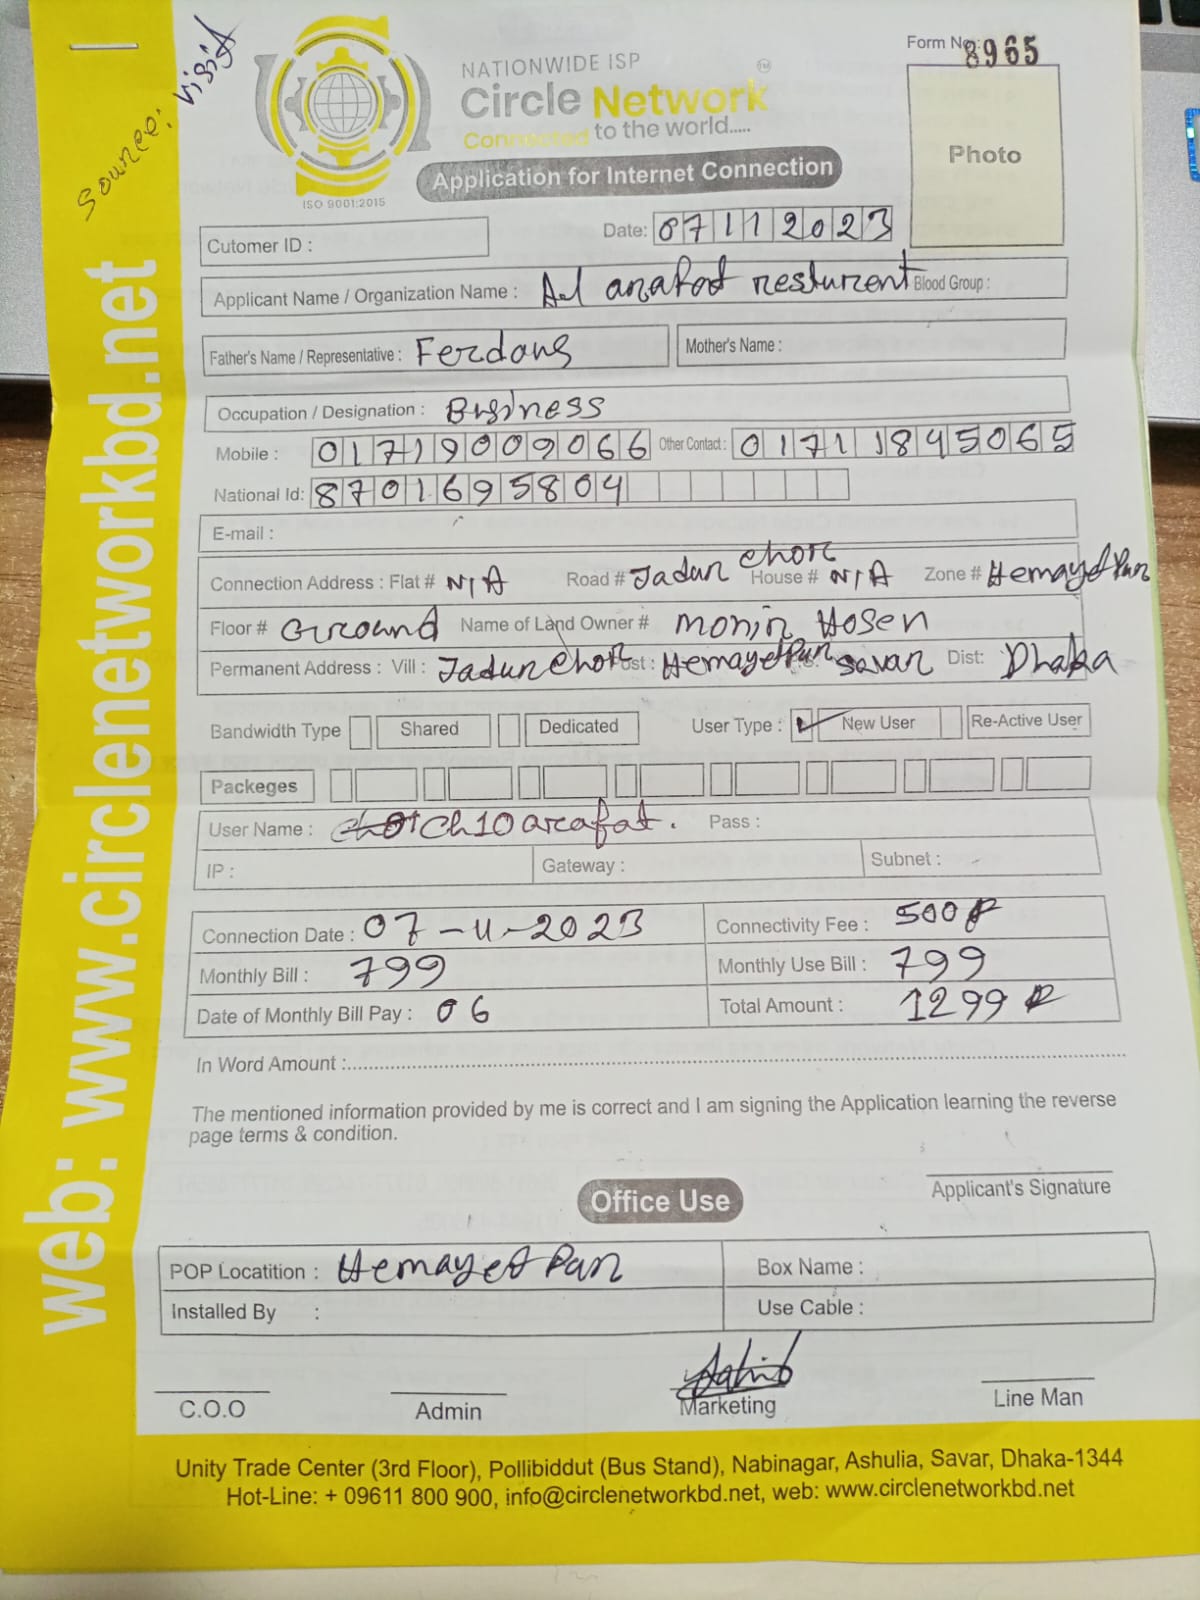 Source: Visit
NATIONWIDE ISP
Circle Network TM
Connected to the world.....
ISO 9001:2015
Application for Internet Connection
Form No: 8965
Photo
Cutomer ID :
Date: 07112023
Applicant Name / Organization Name : Al arafat resturent Blood Group :
Father's Name / Representative : Ferdous Mother's Name :
Occupation / Designation : Business
Mobile : 01719009066 Other Contact : 01711845065
National Id: 8701695804
E-mail :
Connection Address : Flat # N/A Road # Jadur chor House # N/A Zone # Hemayet Pur
Floor # Ground Name of Land Owner # monir Hosen
Permanent Address : Vill : Jadur chor Post : Hemayet Pur P.S: savar Dist: Dhaka
Bandwidth Type Shared Dedicated User Type : New User Re-Active User
Packeges
User Name : ch10arafat. Pass :
IP : Gateway : Subnet :
Connection Date : 07-11-2023 Connectivity Fee : 500
Monthly Bill : 799 Monthly Use Bill : 799
Date of Monthly Bill Pay : 06 Total Amount : 1299
In Word Amount :
The mentioned information provided by me is correct and I am signing the Application learning the reverse
page terms & condition.
Applicant's Signature
Office Use
POP Locatition : Hemayet Pur Box Name :
Installed By : Use Cable :
C.O.O Admin Marketing Line Man
Unity Trade Center (3rd Floor), Pollibiddut (Bus Stand), Nabinagar, Ashulia, Savar, Dhaka-1344
Hot-Line: + 09611 800 900, info@circlenetworkbd.net, web: www.circlenetworkbd.net
web: www.circlenetworkbd.net